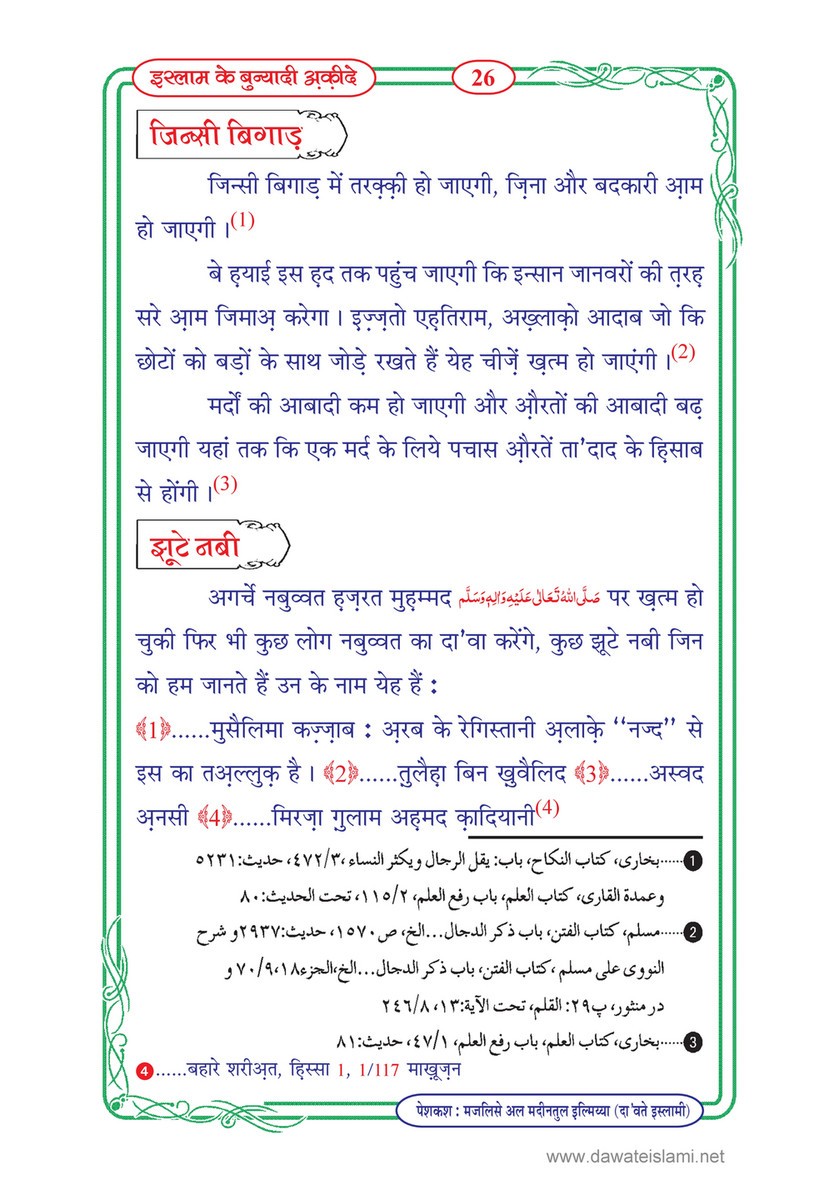 इस्लाम के बुन्यादी अ़क़ीदे
26
जिन्सी बिगाड़
जिन्सी बिगाड़ में तरक़्क़ी हो जाएगी, ज़िना और बदकारी आ़म
हो जाएगी ।(1)
बे ह़याई इस ह़द तक पहुंच जाएगी कि इन्सान जानवरों की त़रह़
सरे आ़म जिमाअ़ करेगा । इ़ज़्ज़तो एह़तिराम, अख़्लाक़ो आदाब जो कि
छोटों को बड़ों के साथ जोड़े रखते हैं येह चीज़ें ख़त्म हो जाएंगी ।(2)
मर्दों की आबादी कम हो जाएगी और औ़रतों की आबादी बढ़
जाएगी यहां तक कि एक मर्द के लिये पचास औ़रतें ता'दाद के ह़िसाब
से होंगी ।(3)
झूटे नबी
अगर्चे नबुव्वत ह़ज़रत मुह़म्मद صَلَّی اللہُ تَعَالٰی عَلَیْہِ وَاٰلِہٖ وَسَلَّم पर ख़त्म हो
चुकी फिर भी कुछ लोग नबुव्वत का दा'वा करेंगे, कुछ झूटे नबी जिन
को हम जानते हैं उन के नाम येह हैं :
﴾1﴿......मुसैलिमा कज़्ज़ाब : अ़रब के रेगिस्तानी अ़लाक़े “नज्द” से
इस का तअ़ल्लुक़ है । ﴾2﴿......त़ुलैह़ा बिन ख़ुवैलिद ﴾3﴿......अस्वद
अ़नसी ﴾4﴿......मिरज़ा ग़ुलाम अह़मद क़ादियानी(4)
1......بخاری، کتاب النکاح، باب: یقل الرجال ویکثر النساء ،۴۷۲/۳، حدیث:۵۲۳۱
وعمدة القاری، کتاب العلم، باب رفع العلم، ۱۱۵/۲، تحت الحدیث:۸۰
2......مسلم، کتاب الفتن، باب ذکر الدجال...الخ، ص۱۵۷۰، حدیث:۲۹۳۷و شرح
النووی علی مسلم ،کتاب الفتن، باب ذکر الدجال...الخ،الجزء۱۸،۷۰/۹ و
در منثور، پ۲۹: القلم، تحت الآیة:۱۳، ۲۴۶/۸
3......بخاری،کتاب العلم، باب رفع العلم، ۴۷/۱، حدیث:۸۱
4......बहारे शरीअ़त, ह़िस्सा 1, 1/117 माख़ूज़न
पेशकश : मजलिसे अल मदीनतुल इल्मिय्या (दा'वते इस्लामी)
www.dawateislami.net